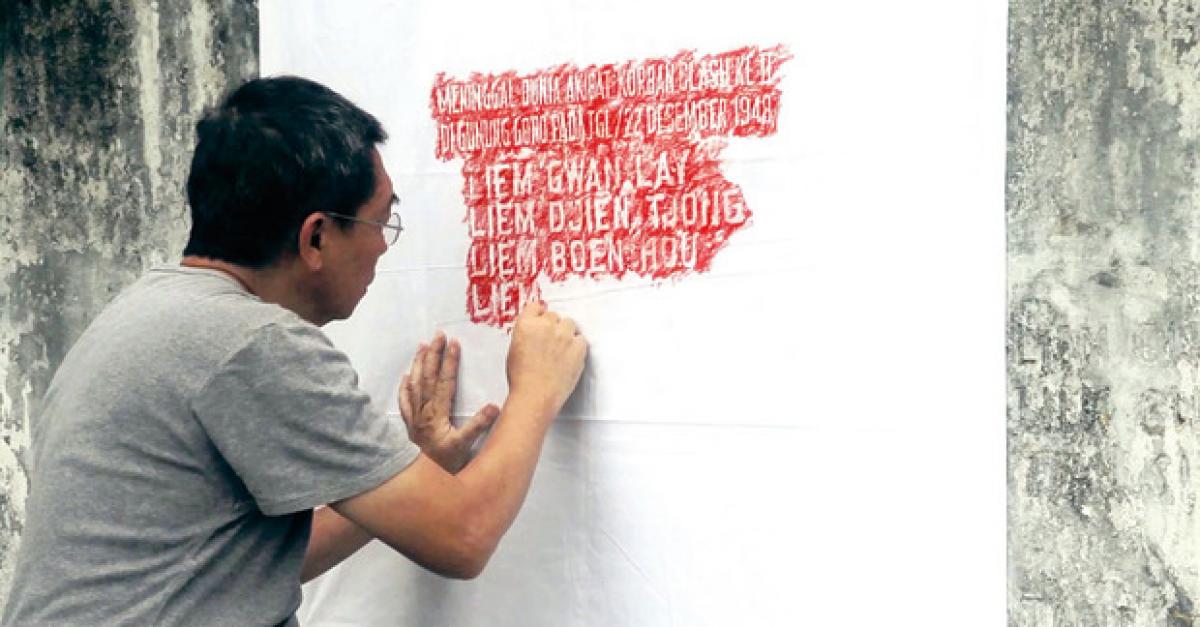 MENINGGAL DUNIA AKIBAT KORBAN CLASH KE II
DI GUNUNG GONO PADA TGL/22 DESEMBER 1948
LIEM GWAN LAY
LIEM DJIEN TJONG
LIEM BOEN HOU
LIEM